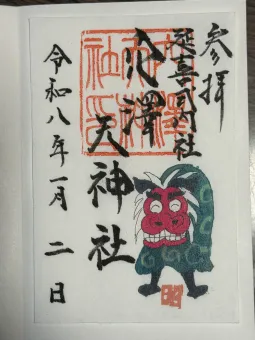 参拝
延喜式内社
穴澤天神社
令和八年一月二日